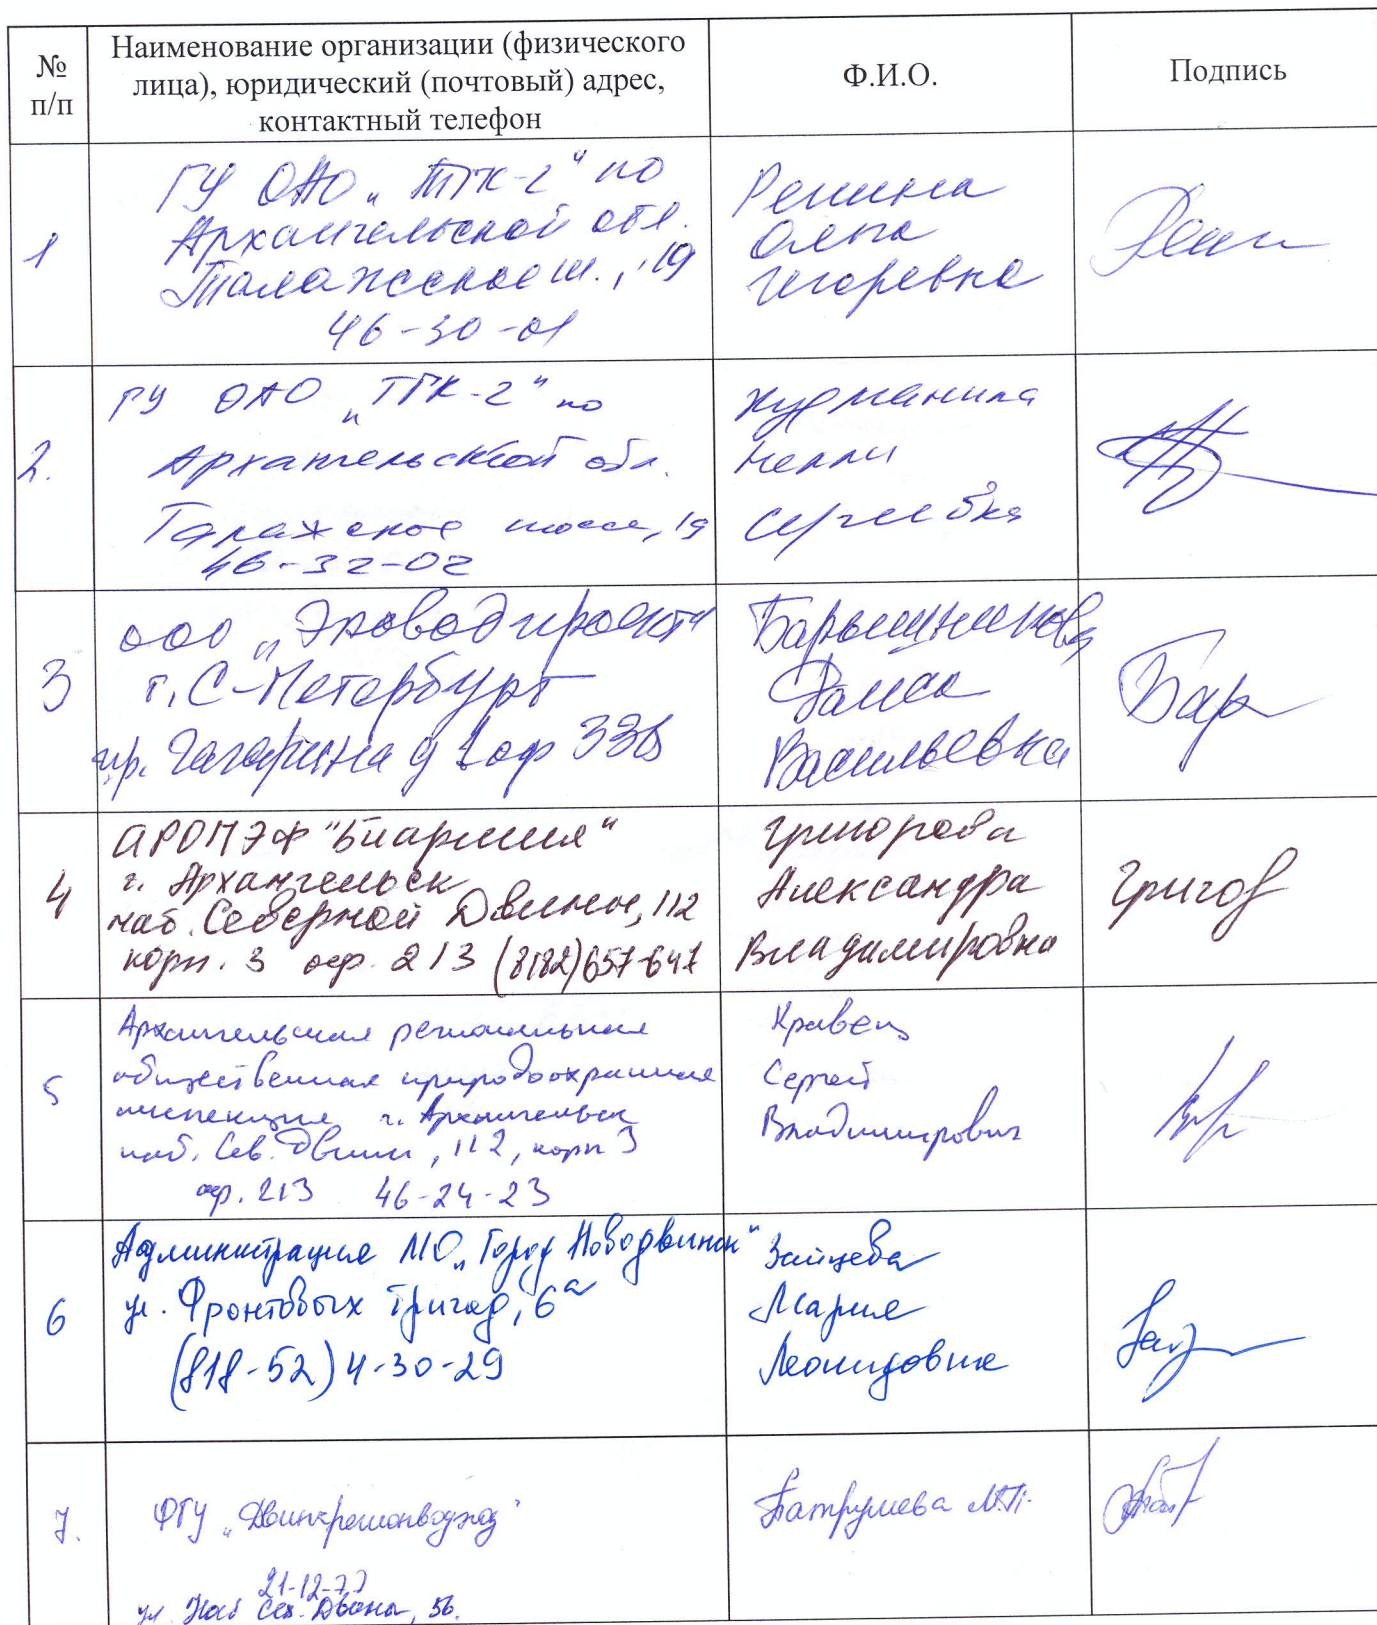 №
п/п
Наименование организации (физического
лица), юридический (почтовый) адрес,
контактный телефон
Ф.И.О.
Подпись
1
ГУ ОАО „ТГК-2" по
Архангельской обл.
Талажское ш., 19
46-30-01
Репина
Ольга
Игоревна
2.
ГУ ОАО „ТГК-2" по
Архангельской обл.
Талажское шоссе, 19
46-32-02
Нелли
Сергеевна
3
ООО „Эководпроект"
г. С-Петербург
пр. Гагарина д 1 оф
Барышникова
Раиса
Васильевна
Бар
4
АРОМЭФ "Биармия"
г. Архангельск
наб. Северной Двины, 112
корп. 3 оф. 213 (8182)657-647
Григорова
Александра
Владимировна
Григор
5
Архангельская региональная
общественная природоохранная
инспекция г. Архангельск
наб. Сев. Двины, 112, корп 3
оф. 213 46-24-23
Кравец
Сергей
Владимирович
6
Администрация МО „Город Новодвинск"
ул. Фронтовых бригад, 6а
(818-52) 4-30-29
Зайцева
Мария
Леонидовна
7.
ФГУ „Двинарегионводхоз"
21-12-77
ул. Наб Сев. Двины, 56.
Патрушева М.П.